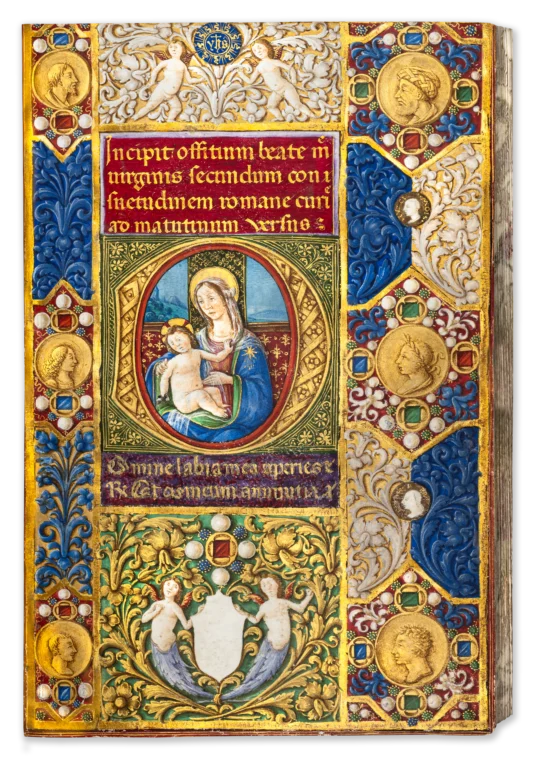 yhs
Incipit offitium beate m̄
uirginis secundum con
suetudinem romane curi
ad matutinum Versus
D
Omine labia mea aperies
Et os meum annutia